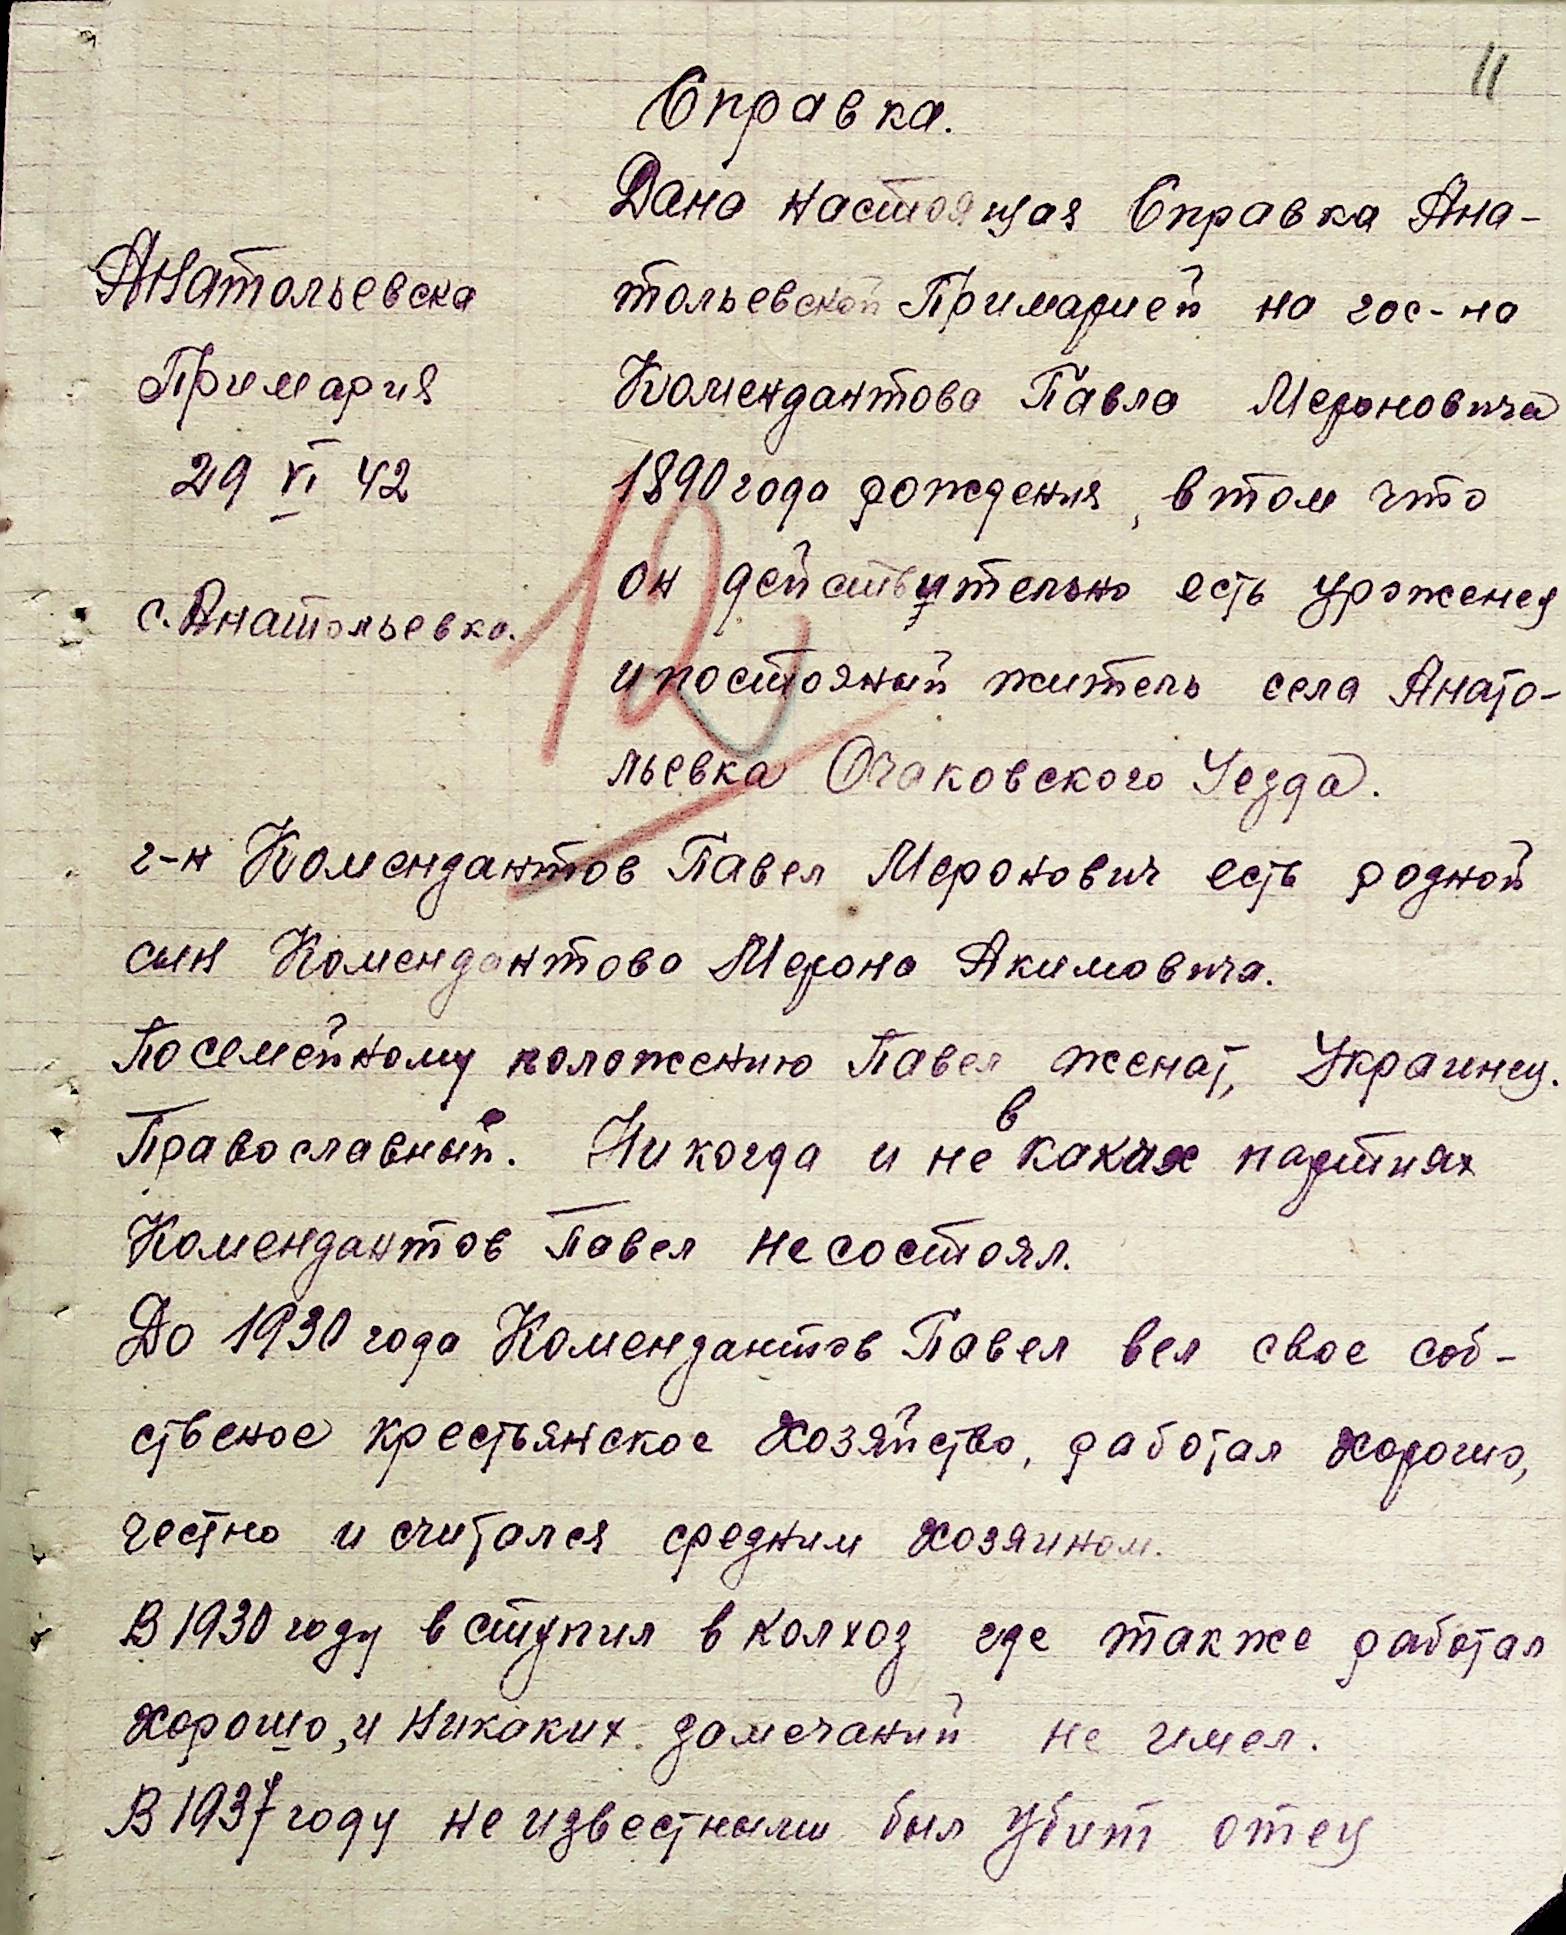 11
Справка.
Дана настоящая Справка Ана-
тольевской Примарией на гос-на
Комендантова Павла Мероновича
1890 года рождения, в том что
он действительно есть уроженец
и постояный житель села Анато-
льевка Очаковского Уезда.
Анатольевска
Примария
29 VI 42
с. Анатольевка.
12
г-н Комендантов Павел Меронович есть родной
сын Комендантова Мерона Акимовича.
По семейному положению Павел женат, Украинец.
Православный. Никогда и не в каких партиях
Комендантов Павел не состоял.
До 1930 года Комендантов Павел вел свое соб-
ственое крестьянское хозяйство, работал хорошо,
честно и считался средним хозяином.
В 1930 году вступил в колхоз где также работал
хорошо, и никаких замечаний не имел.
В 1937 году не известными был убит отец